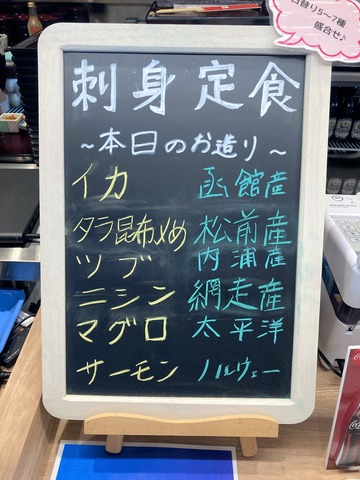 日替り5〜7種
盛合せ♪
刺身定食
〜本日のお造り〜
イカ 函館産
タラ昆布〆め 松前産
ツブ 内浦産
ニシン 網走産
マグロ 太平洋
サーモン ノルウェー